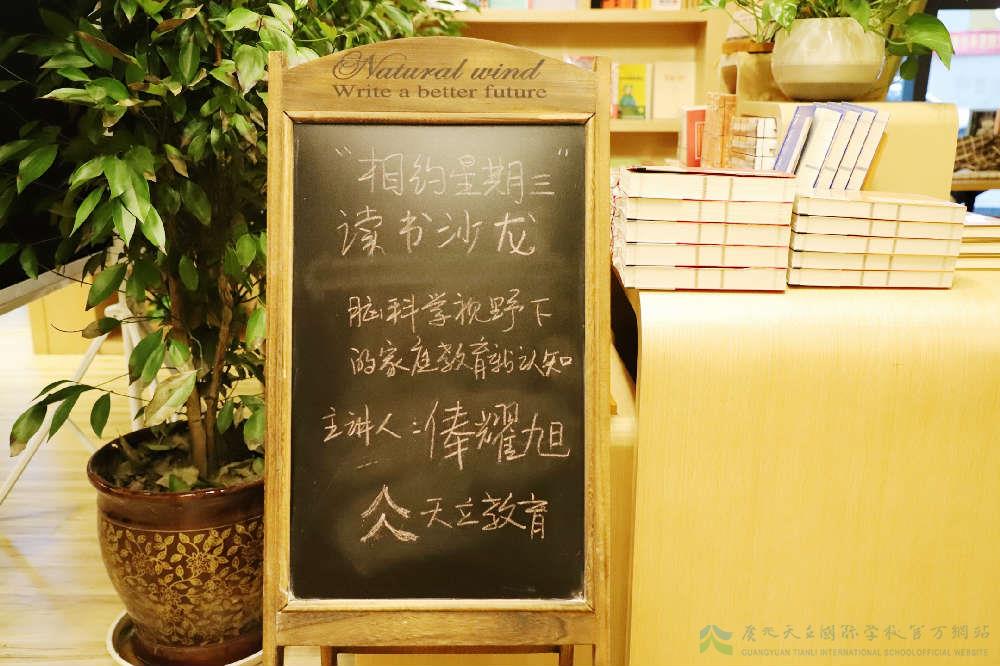 Natural wind
Write a better future
"相约星期三"
读书沙龙
脑科学视野下
的家庭教育新认知
主讲人:俸耀旭
天立教育
广元天立国际学校官方網站
GUANGYUAN TIANLI INTERNATIONAL SCHOOL OFFICIAL WEBSITE